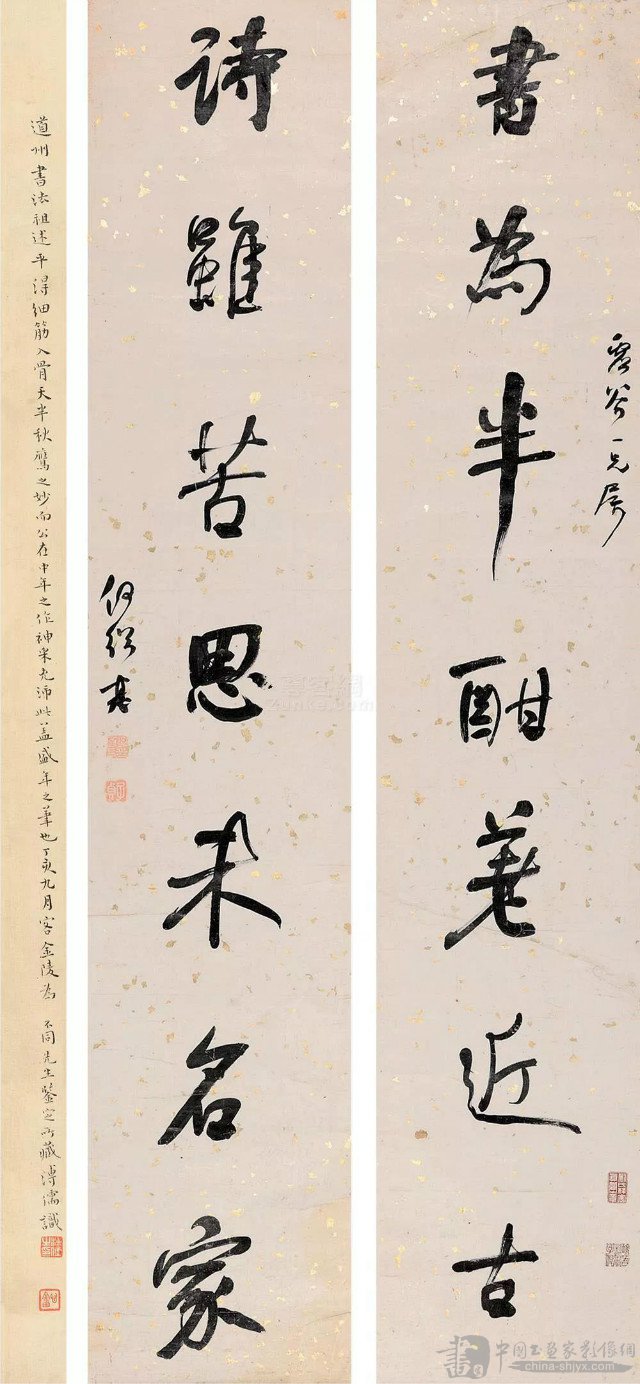 霞谷一兄屬
書為半酣差近古
詩雖苦思未名家
何紹基
道州書法祖述平淂細筋入骨天半秋鷹之妙而公在中年之作神采尤沛此蓋盛年之筆也丁亥九月客金陵為
不同先生鑒定所藏溥儒識
尊客網
zunke.com
書
中國书画家影像網
china-shjyx.com